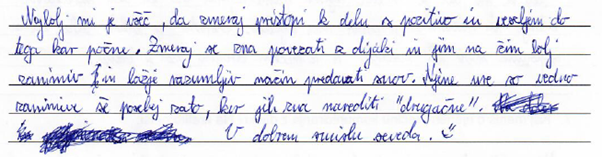 Najbolj mi je všeč, da zmeraj pristopi k delu s pozitivo in veseljem do
tega kar počne. Zmeraj se zna povezati z dijaki in jim na čim bolj
zanimiv in lažje razumljiv način predavati snov. Njene ure so vedno
zanimive še posebej zato, ker jih zna narediti "drugačne".
V dobrem smislu seveda. :)